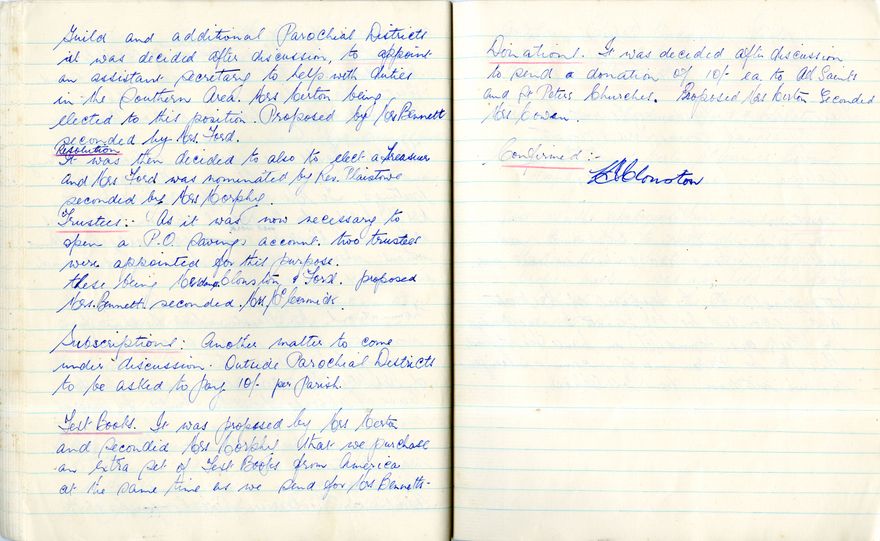 Guild and additional Parochial Districts
it was decided after discussion, to appoint
an assistant secretary to help with duties
in the Southern Area. Mrs Merton being
elected to this position. Proposed by Mrs Bennett
seconded by Mrs. Ford.
Resolution
It was then decided to also to elect a Treasurer
and Mrs Ford was nominated by Rev. Plaistowe
seconded by Mrs Morphy.
Trustees:- As it was now necessary to
open a P.O. Savings account. two trustees
were appointed for this purpose.
these being Clouston & Ford. proposed
Mrs. Bennett seconded. Mrs. McCormick.
Subscriptions: Another matter to come
under discussion. Outside Parochial Districts
to be asked to pay 10/- per Parish.
Text Books. It was proposed by Mrs Merton
and seconded Mrs Morphy that we purchase
an extra set of Text Books from America
at the same time as we send for Mrs Bennetts-
Donations. It was decided after discussion
to send a donation of 10/- ea to All Saints
and St Peters Churches. Proposed Mrs Merton Seconded
Mrs. Cowan.
Confirmed:-
Clouston